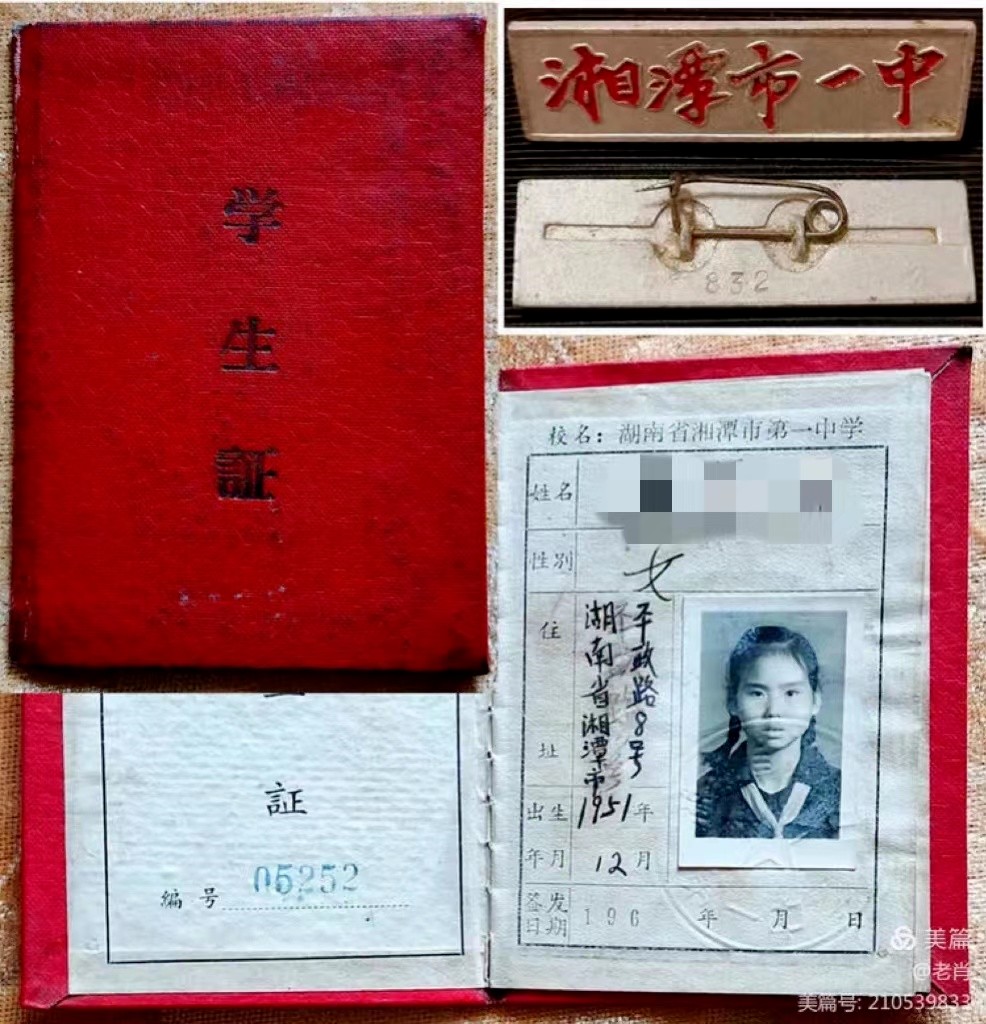 学
生
証
湘潭市一中
832
証
编号 05252
校名：湖南省湘潭市第一中学
姓名
性别 女
住址 湖南省湘潭市
平政路8号
出生年月 1951年12月
签发日期 196 年 月 日
美篇
@老肖
美篇号: 210539833